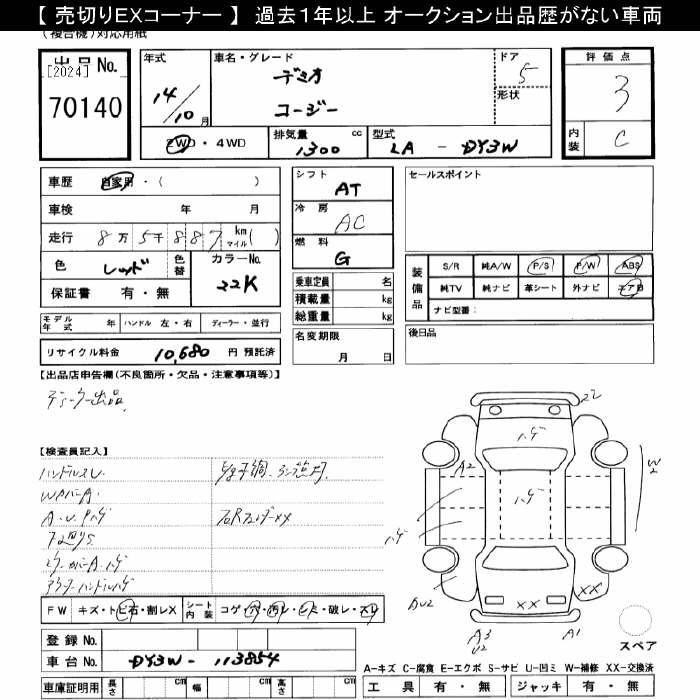 【 売切りEXコーナー 】 過去１年以上 オークション出品歴がない車両
(複合機)対応用紙
出品No.
[2024]
70140
年式
14/10月
車名・グレード
デミオ
コージー
ドア
5
形状
評価点
3
内装
C
2WD・4WD
排気量 cc
1300
型式
LA - DY3W
車歴 自家用・( )
車検 年 月
走行 8万5千887 km マイル( )
色 レッド 色替
カラーNo.
22K
保証書 有・無
シフト
AT
冷房
AC
燃料
G
乗車定員 名
積載量 kg
総重量 kg
セールスポイント
装備品
S/R 純A/W P/S P/W ABS
純TV 純ナビ 革シート 外ナビ エアB
ナビ型番:
モデル年式 年 ハンドル 左・右 ディーラー・並行
リサイクル料金 10,680 円 預託済
名変期限
月 日
後日品
【出品店申告欄(不良箇所・欠品・注意事項等)】
ディーラー出品
【検査員記入】
ハンドルスレ
WPバーA.
A・U・Pハゲ
ミラーカバーA・ハゲ
アウターハンドルハゲ
右Rフェンダーxx
ハゲ
ハゲ
ハゲ
A2
W2
AU2
XX
XX
A3
U2
A1
スペア
FW キズ・トビ石・割レX シート内装 コゲ・穴・汚レ・シミ・破レ・スレ
登録No.
車台No. DY3W - 113854
車庫証明用 長さ cm 幅 cm 高さ cm
A-キズ C-腐食 E-エクボ S-サビ U-凹ミ W-補修 XX-交換済
工具 有・無 ジャッキ 有・無